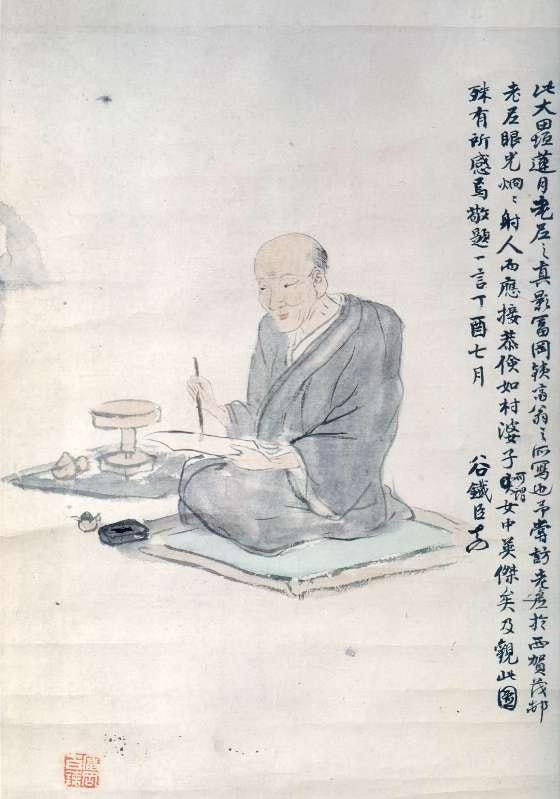 此大田垣蓮月老尼之真影冨岡鉄斎翁之所写也予嘗訪老尼於西賀茂邨
老尼眼光炯〻射人而應接恭倹如村婆子可謂女中英傑矣及觀此圖
殊有所感焉敬題一言丁酉七月 谷鐵臣
富岡百錬